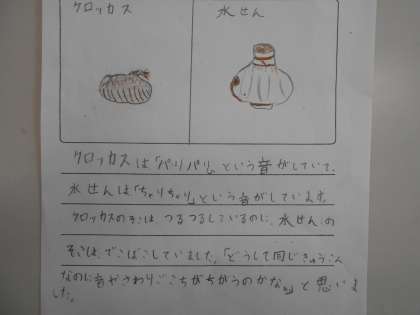 クロッカス
水せん
クロッカスは「パリパリ」という音がしていて、
水せんは「ちゃりちゃり」という音がしています。
クロッカスのそこは、つるつるしているのに、水せんの
そこは、でこぼこしていました。「どうして同じきゅうこん
なのに音やさわりごこちがちがうのかな。」と思いま
した。